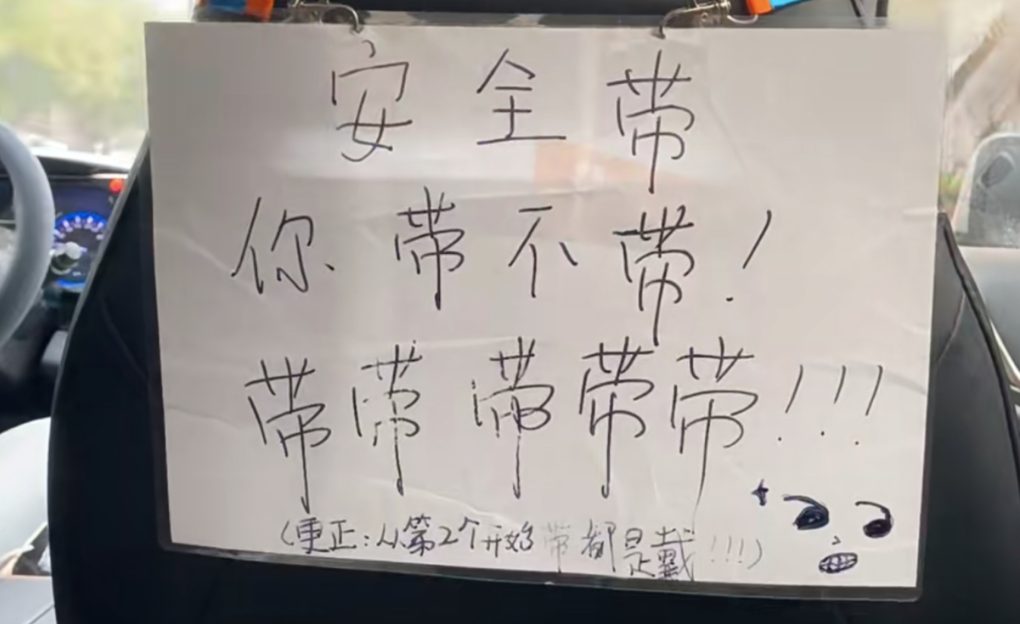 安全带
你带不带!
带带带带带!!!
(更正:从第2个开始带都是戴!!!)